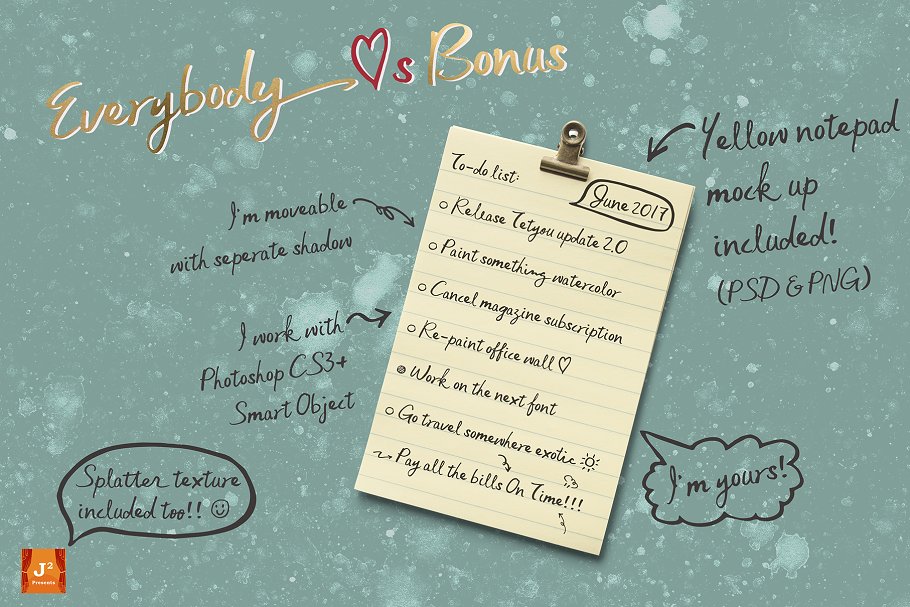 Everybody ♡s Bonus
Yellow notepad
mock up
included!
(PSD & PNG)
I'm moveable
with seperate shadow
I work with
Photoshop CS3+
Smart Object
To-do list:
June 2017
Release Tetyou update 2.0
Paint something watercolor
Cancel magazine subscription
Re-paint office wall ♡
Work on the next font
Go travel somewhere exotic
Pay all the bills On Time!!!
I'm yours!
Splatter texture
included too!! ☺
J²
Presents